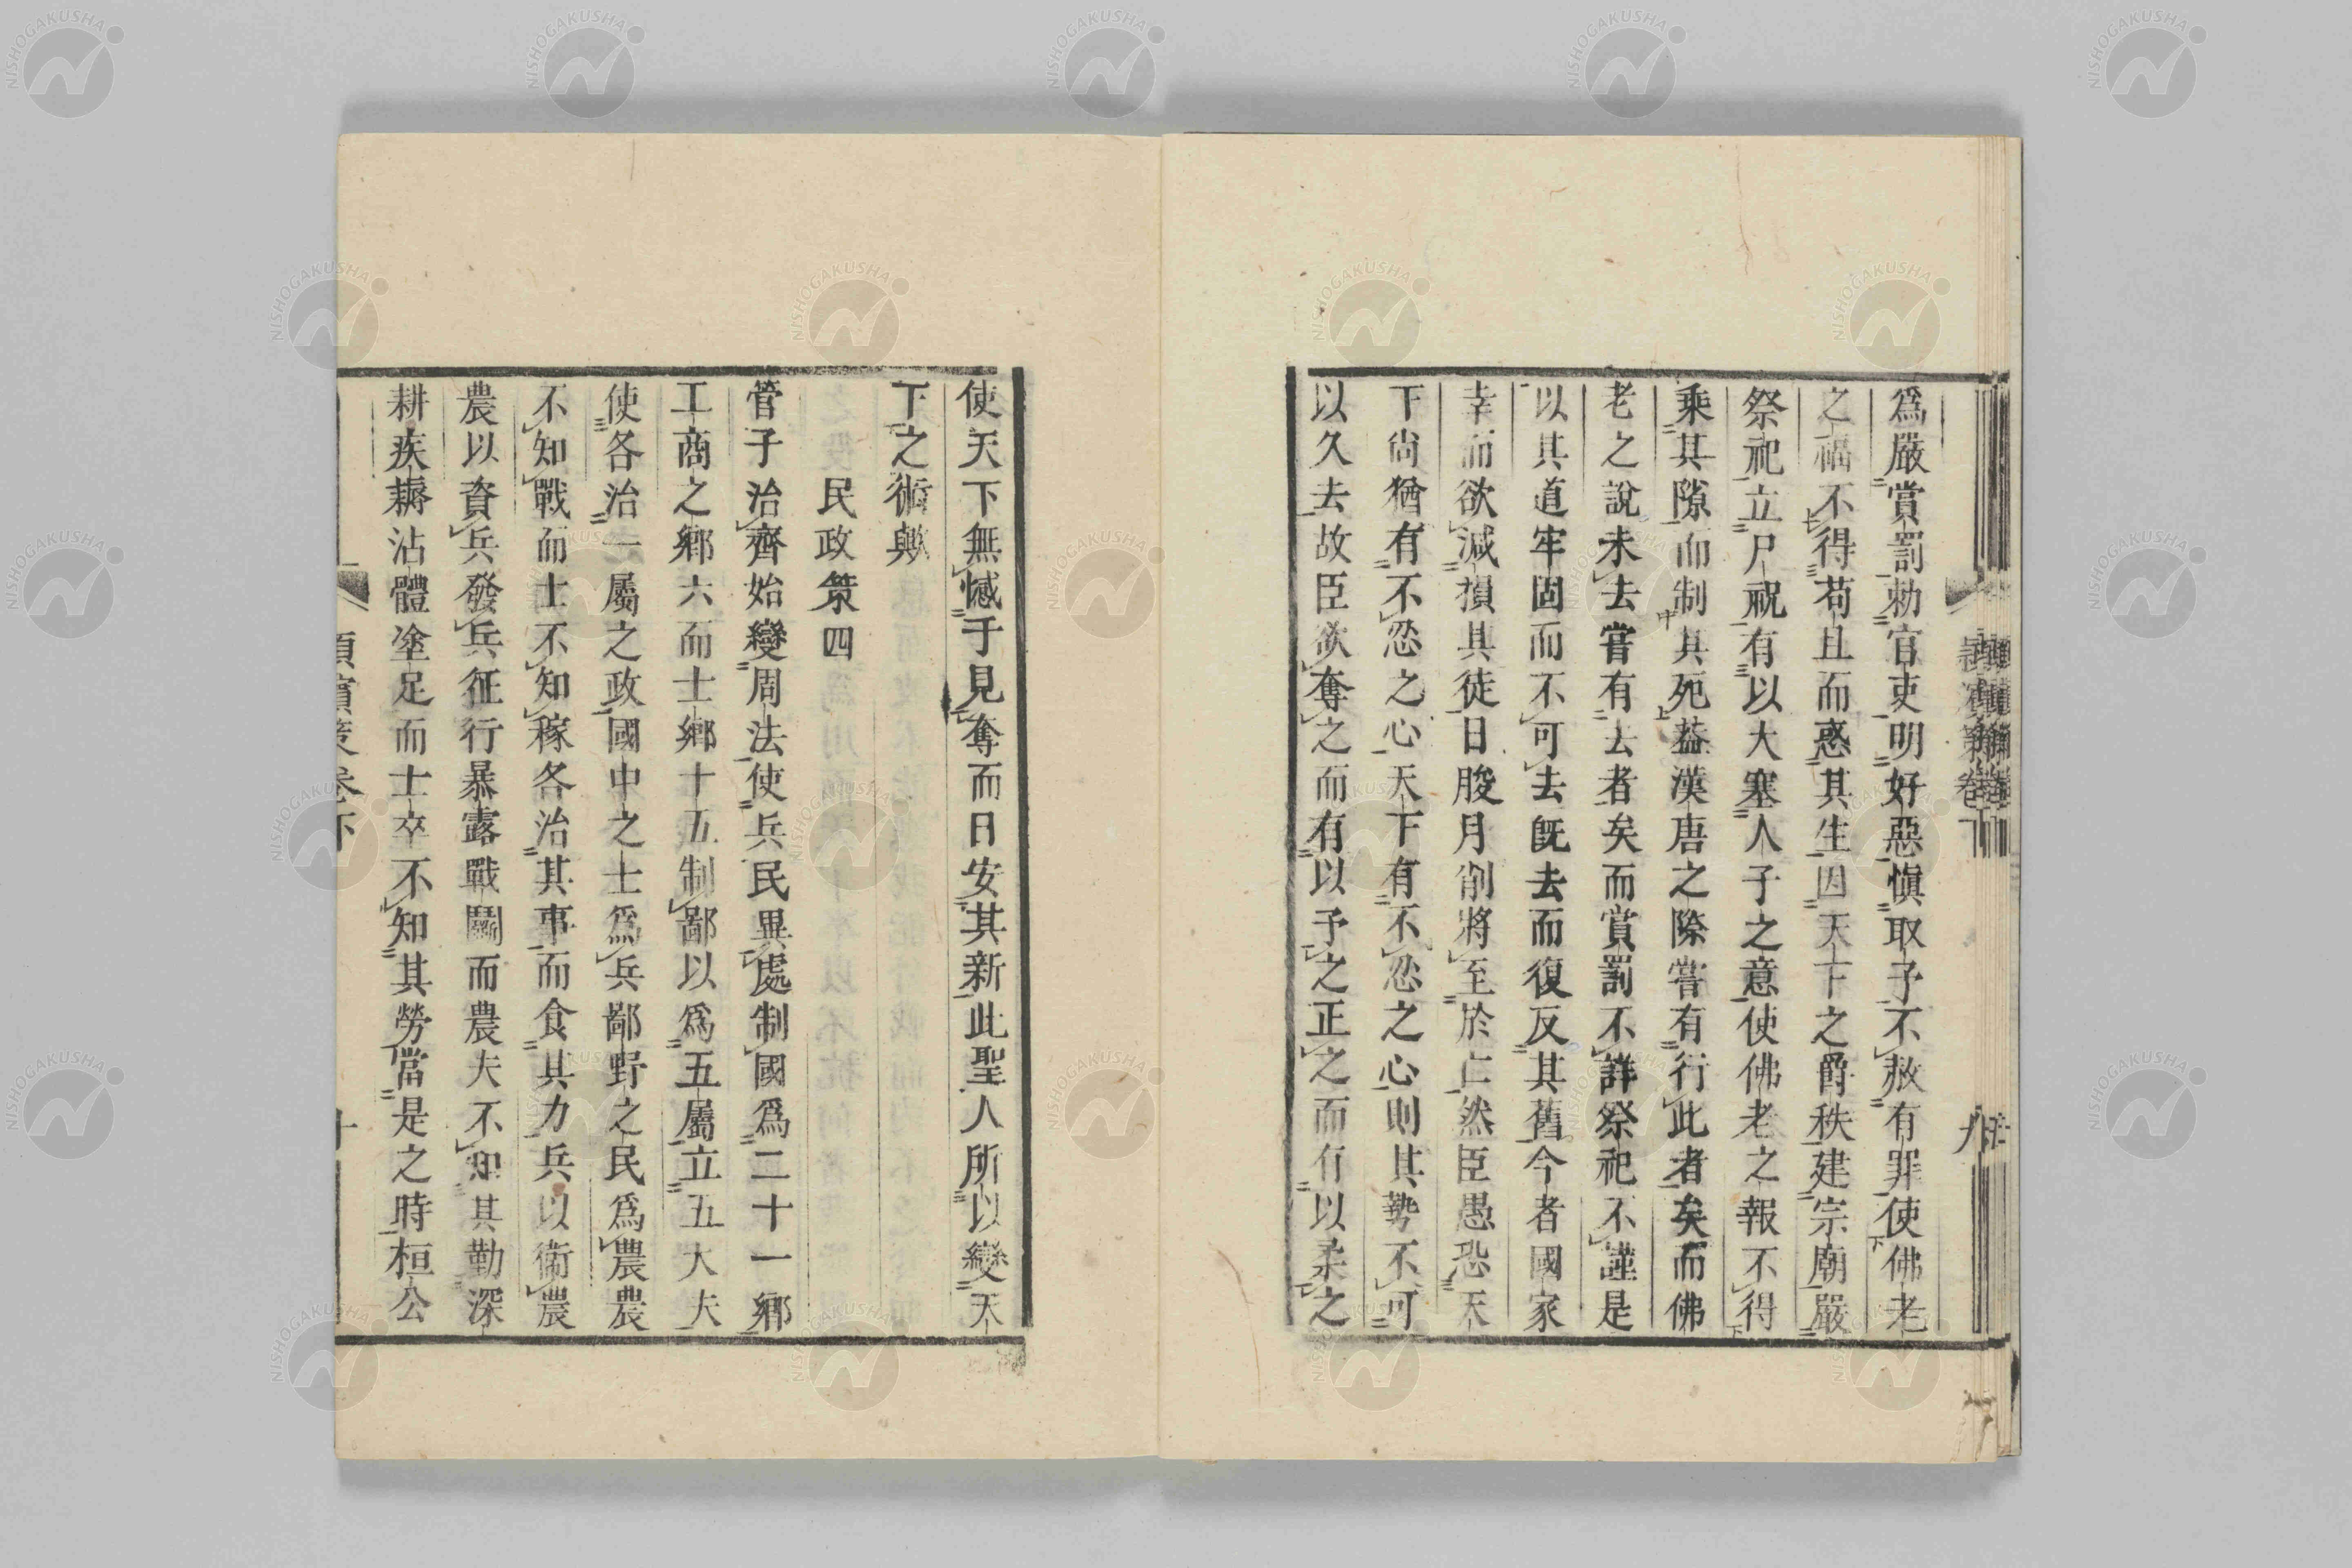 爲嚴賞罰勅官吏明好惡愼取予不赦有罪使佛老
之福不得苟且而惑其生因天下之爵秩建宗廟嚴
祭祀立尸祝有以大塞人子之意使佛老之報不得
乘其隙而制其死葢漢唐之際嘗有行此者矣而佛
老之說未去嘗有去者矣而賞罰不詳祭祀不謹是
以其道牢固而不可去旣去而復反其舊今者國家
幸而欲減損其徒日朘月削將至於亡然臣愚恐天
下尙猶有不忍之心天下有不忍之心則其勢不可
以久去故臣欲奪之而有以予之正之而有以柔之
使天下無憾于見奪而日安其新此聖人所以變天
下之術歟
民政策四
管子治齊始變周法使兵民異處制國爲二十一鄉
工商之鄉六而士鄉十五制鄙以爲五屬立五大夫
使各治一屬之政國中之士爲兵鄙野之民爲農農
不知戰而士不知稼各治其事而食其力兵以衞農
農以資兵發兵征行暴露戰鬭而農夫不知其勤深
耕疾耨沾體塗足而士卒不知其勞當是之時桓公
潁濱策卷下
十
NISHOGAKUSHA